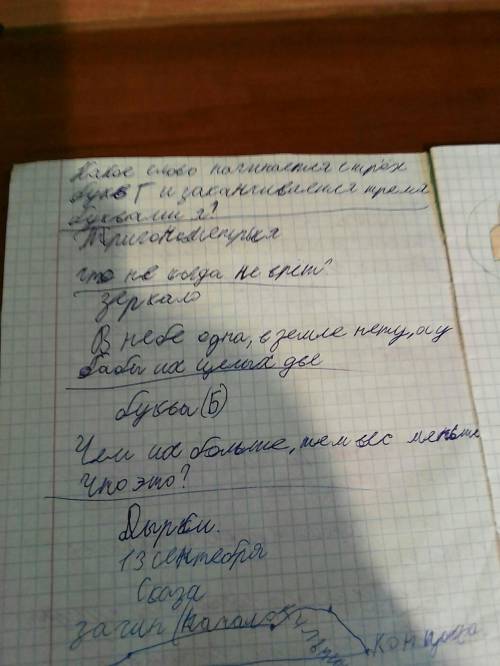 Какое слово начинается с трёх
букв Г и заканчивается тремя
буквами я?
Тригонометрия
что не когда не врёт?
зеркало
В небе одна, в земле нету, а у
бабы их целых две
буква (б)
Чем их больше, тем вес меньше
Что это?
Дырки.
13 сентября
Сказа
зачин (начало)
концовка